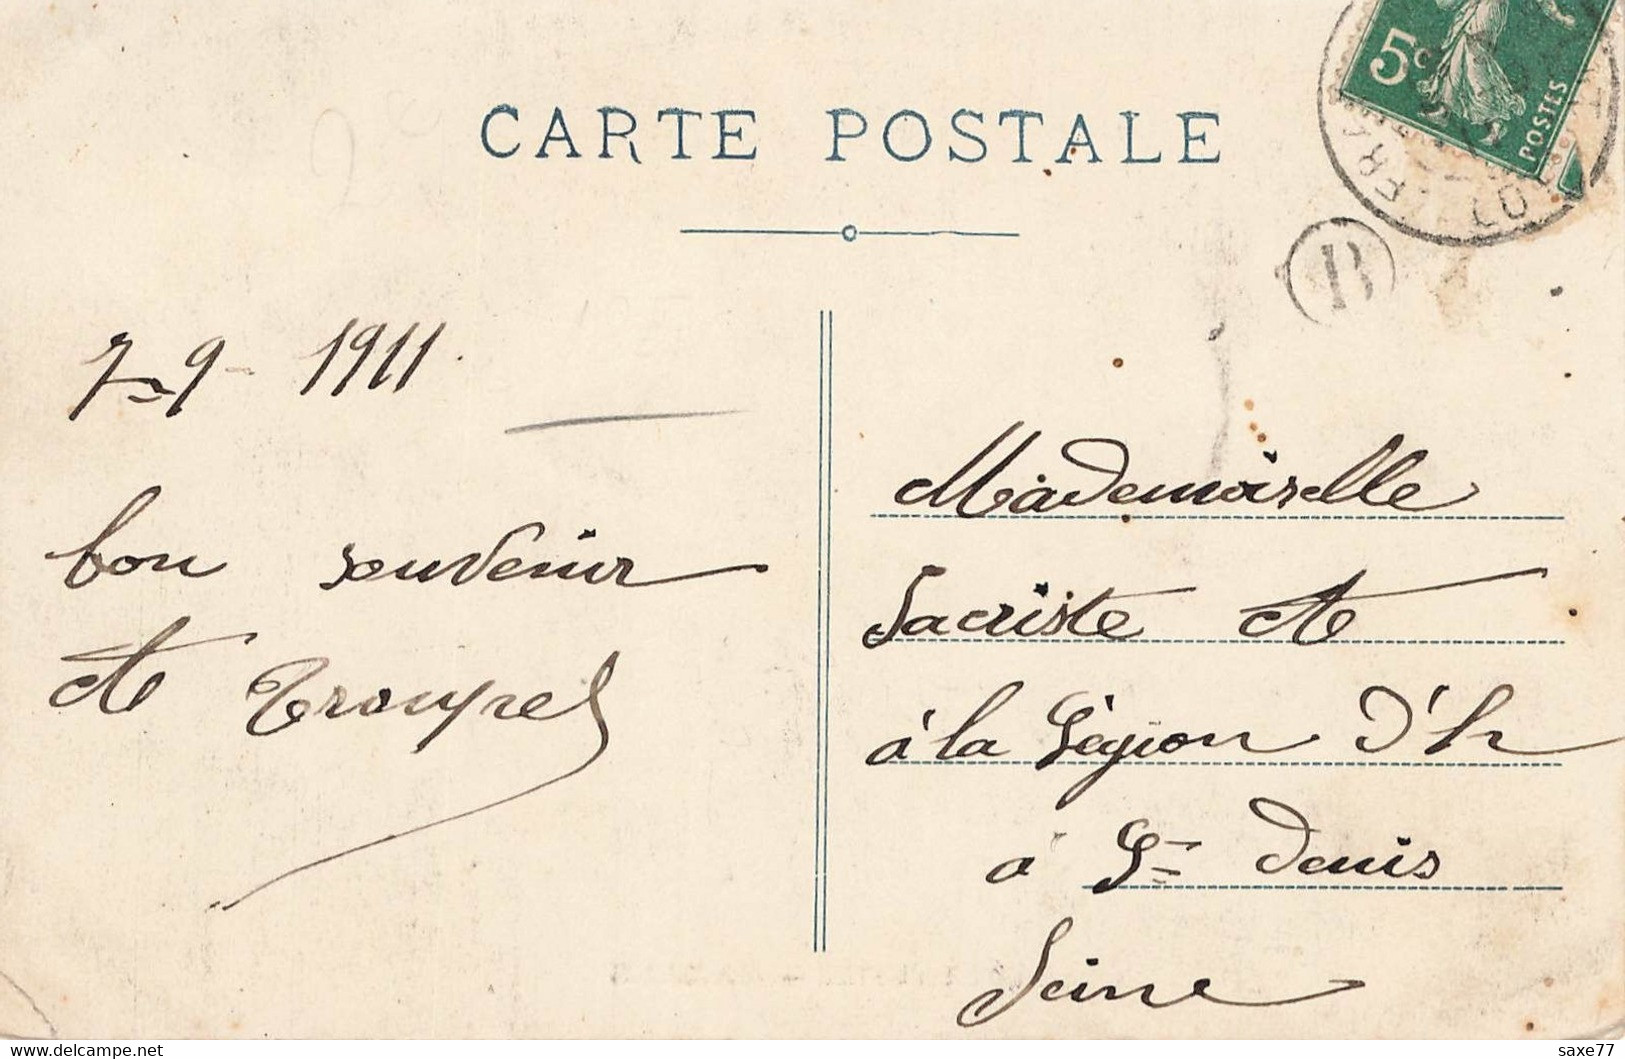 CARTE POSTALE
5c
POSTES
B
7-9-1911.
bon souvenir
A Troupel
Mademoiselle
Sacriste A
à la Légion d'h
à St Denis
Seine
delcampe.net
saxe77